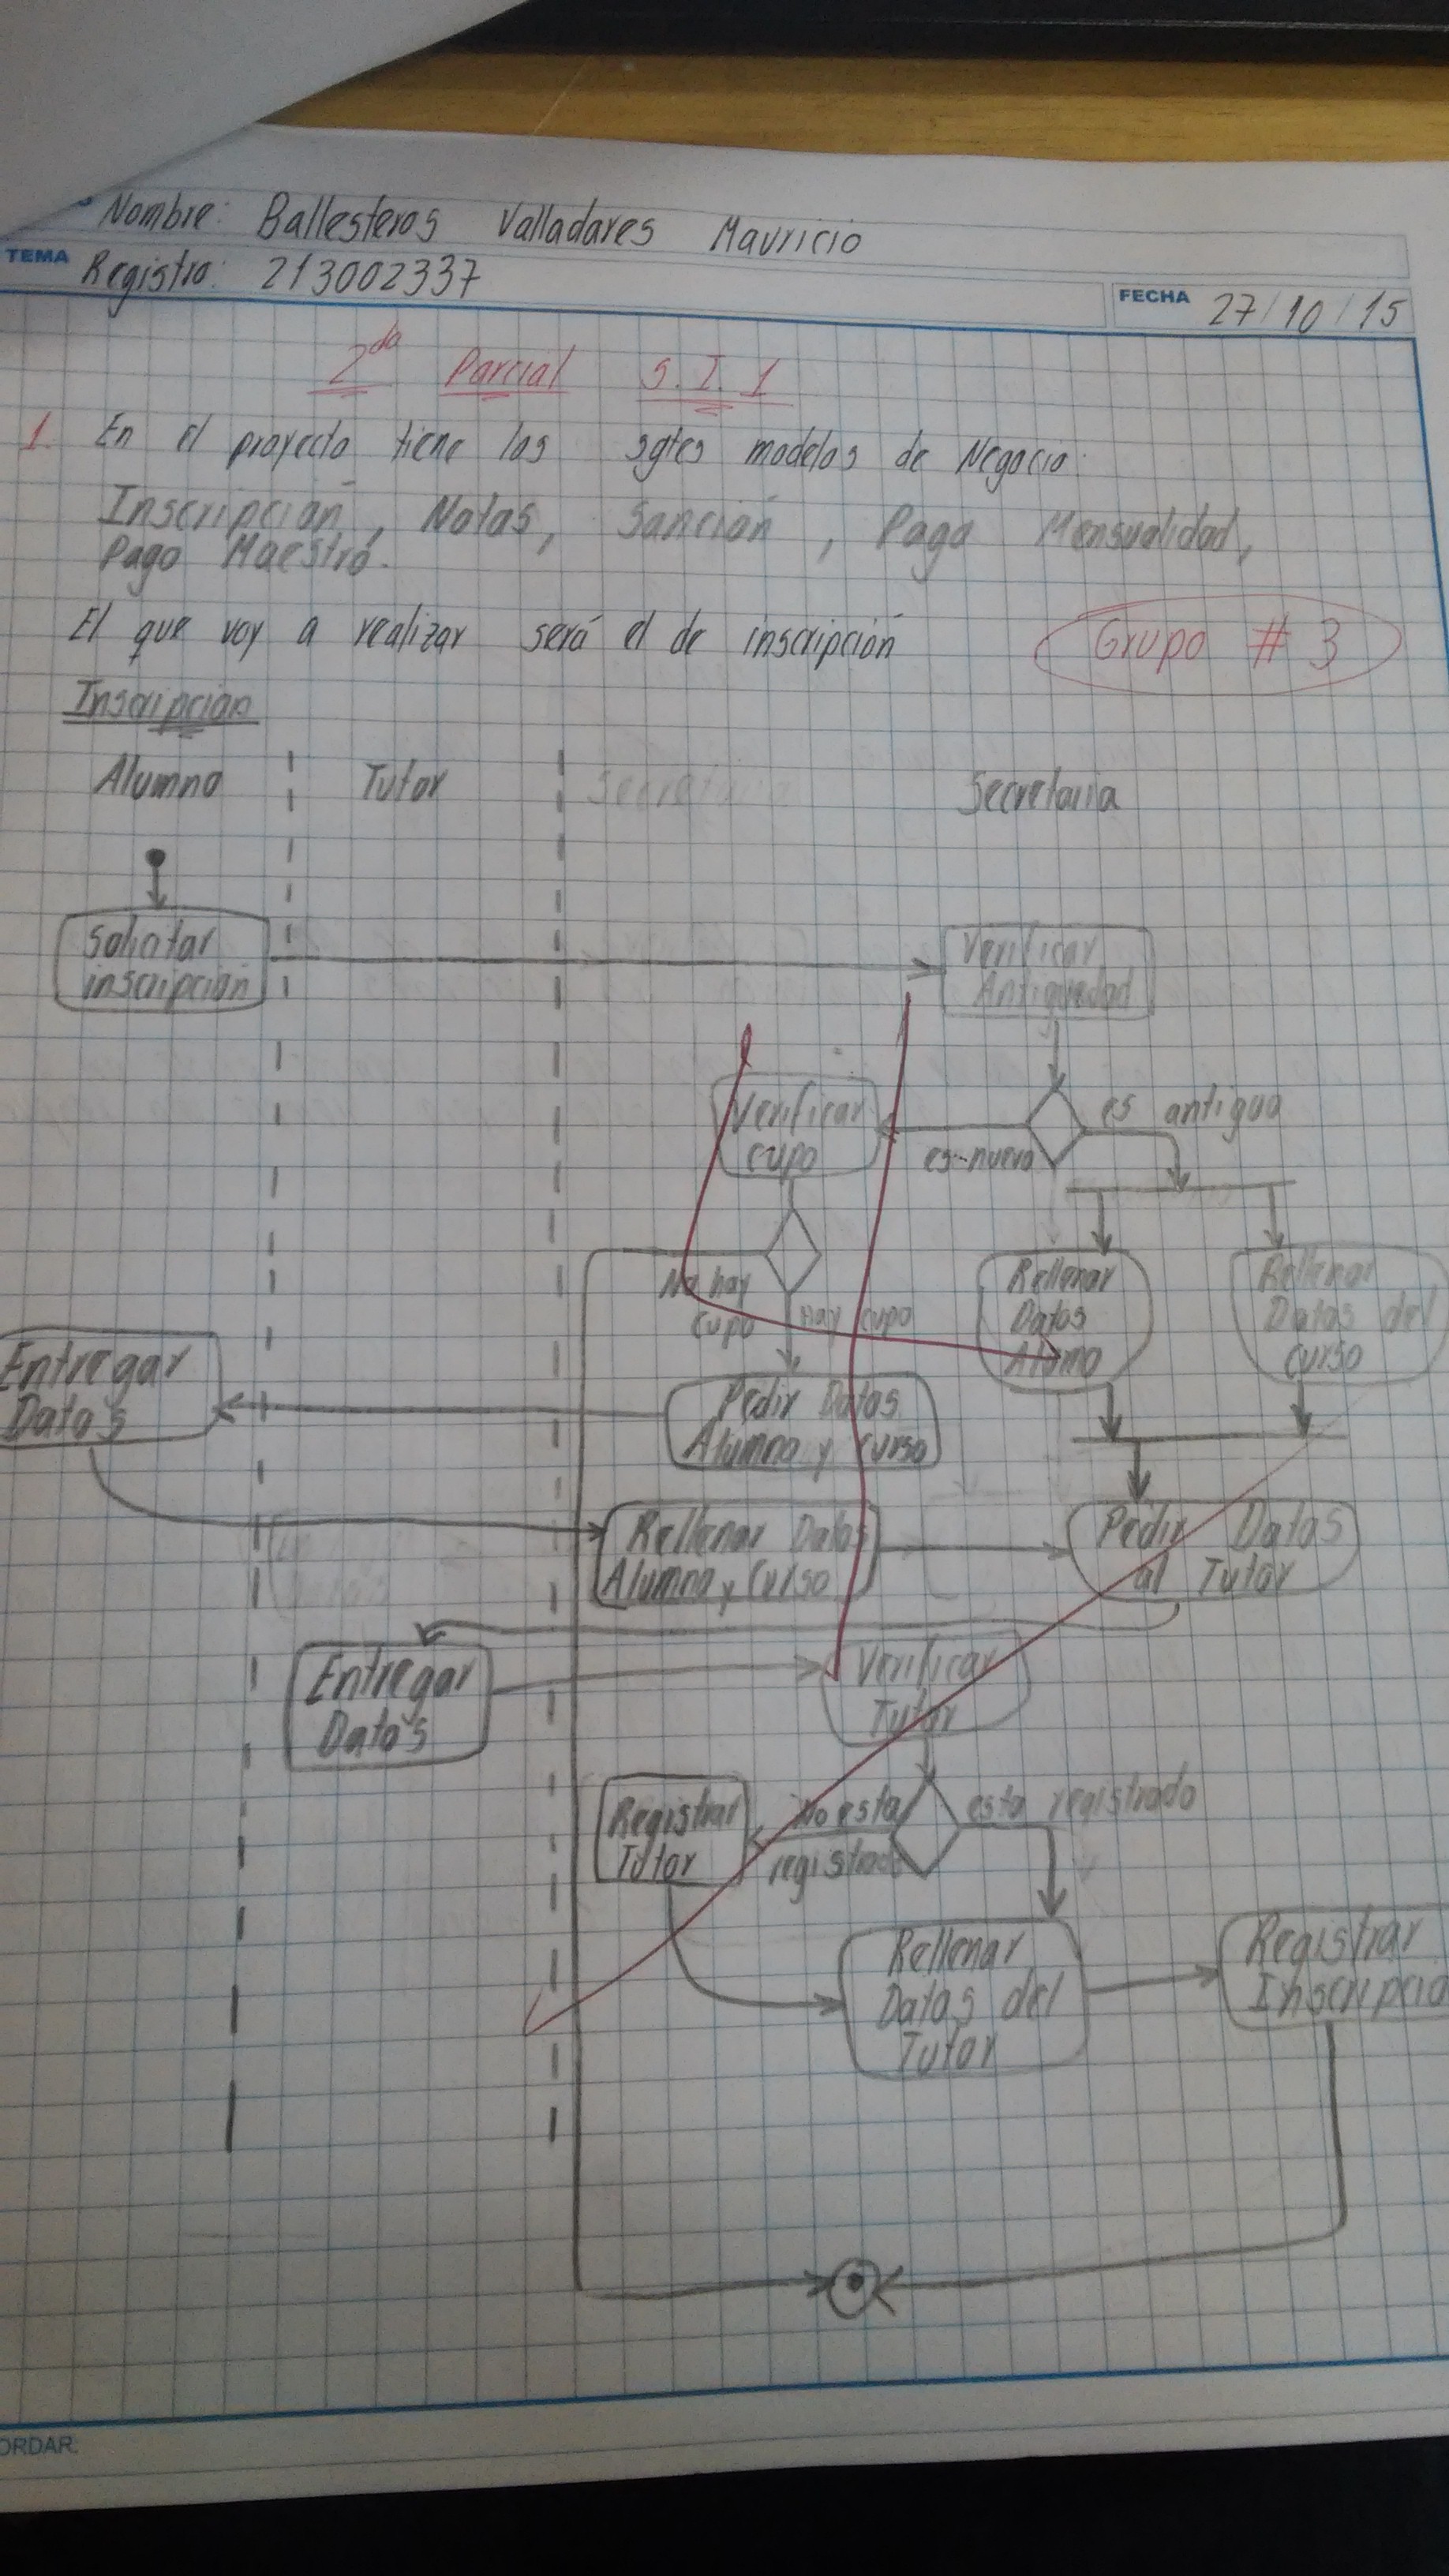 Nombre: Ballesteros Valladares Mauricio
TEMA Registro: 213002337
FECHA 27/10/15
2da Parcial S.I.1
1. En el proyecto tiene los sgtes modelos de Negocio:
Inscripción, Notas, Sanción, Pago Mensualidad,
Pago Maestro.
El que voy a realizar será el de inscripción
Grupo # 3
Inscripción
Alumno Tutor Secretaria Secretaria
Solicitar
inscripción
Verificar
Antiguedad
Verificar
cupo
es nuevo
es antiguo
No hay
cupo
Hay cupo
Rellenar
Datos
Alumo
Rellenar
Datos del
curso
Entregar
Datos
Pedir Datos
Alumno y curso
Rellenar Datos
Alumno y Curso
Pedir Datos
al Tutor
Entregar
Datos
Verificar
Tutor
Registrar
Tutor
No esta
registrado
esta registrado
Rellenar
Datos del
Tutor
Registrar
Inscripcio
ORDAR.